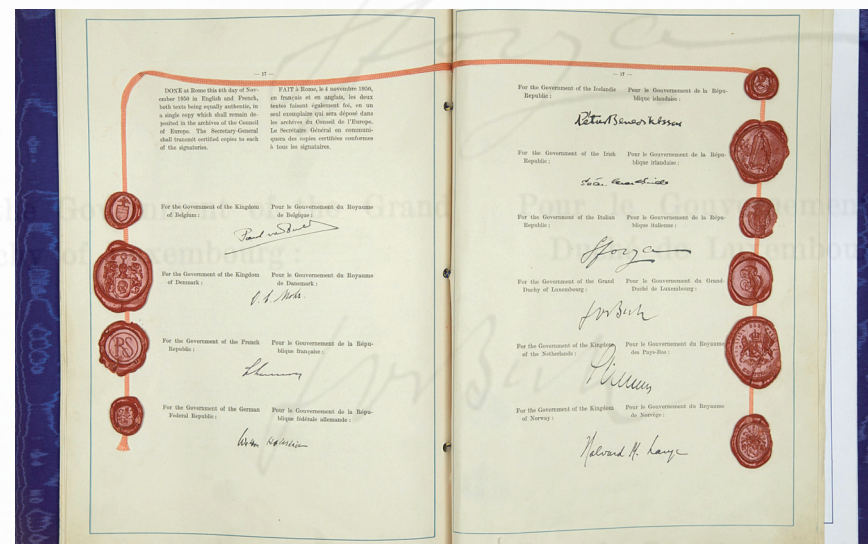 — 17 —
DONE at Rome this 4th day of Nov-
ember 1950 in English and French,
both texts being equally authentic, in
a single copy which shall remain de-
posited in the archives of the Council
of Europe. The Secretary-General
shall transmit certified copies to each
of the signatories.
FAIT à Rome, le 4 novembre 1950,
en français et en anglais, les deux
textes faisant également foi, en un
seul exemplaire qui sera déposé dans
les archives du Conseil de l'Europe.
Le Secrétaire Général en communi-
quera des copies certifiées conformes
à tous les signataires.
For the Government of the Kingdom
of Belgium :
Pour le Gouvernement du Royaume
de Belgique :
For the Government of the Kingdom
of Denmark :
Pour le Gouvernement du Royaume
de Danemark :
For the Government of the French
Republic :
Pour le Gouvernement de la Répu-
blique française :
RS
For the Government of the German
Federal Republic :
Pour le Gouvernement de la Répu-
blique fédérale allemande :
For the Government of the Icelandic
Republic :
Pour le Gouvernement de la Répu-
blique islandaise :
For the Government of the Irish
Republic :
Pour le Gouvernement de la Répu-
blique irlandaise :
For the Government of the Italian
Republic :
Pour le Gouvernement de la Répu-
blique italienne :
Sforza
For the Government of the Grand
Duchy of Luxembourg :
Pour le Gouvernement du Grand-
Duché de Luxembourg :
Jos Bech
For the Government of the Kingdom
of the Netherlands :
Pour le Gouvernement du Royaume
des Pays-Bas :
For the Government of the Kingdom
of Norway :
Pour le Gouvernement du Royaume
de Norvège :
Halvard M. Lange